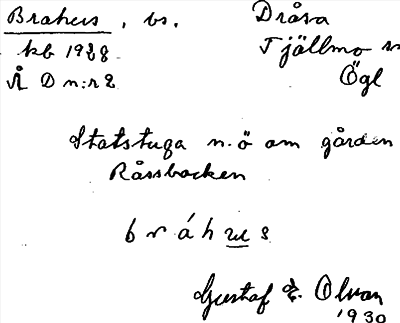 Brahus, bs. Dråsa
kb 1928 Tjällmo sn
Å D n:r 2 Ögl
Statstuga n.ö om gården
Råssbacken
b r á h u s
Gustaf Olvon
1930